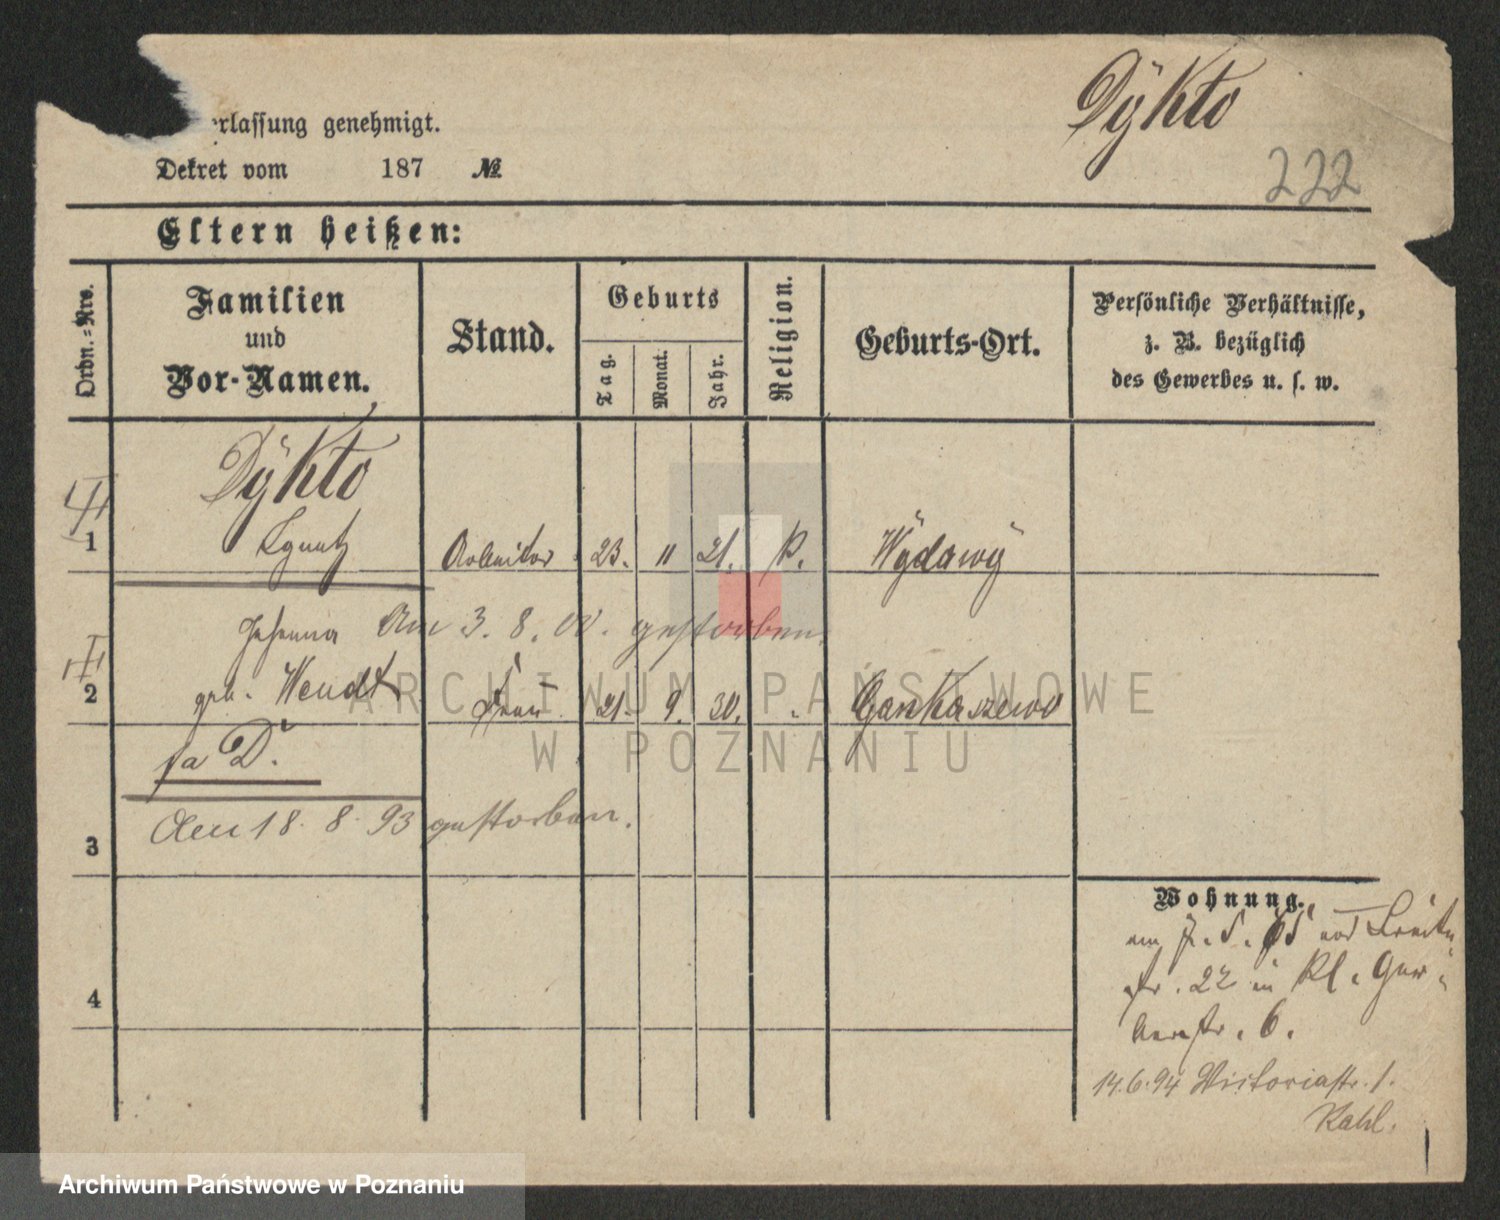 Dÿkto
erlassung genehmigt.
Dekret vom 187 №
222
Eltern heißen:
Ordn.-Nro.
Familien
und
Vor-Namen.
Stand.
Geburts
Tag.
Monat.
Jahr.
Religion.
Geburts-Ort.
Persönliche Verhältnisse,
z. B. bezüglich
des Gewerbes u. s. w.
Dÿkto
1 Ignatz Arbeiter 23. 11 21. k. Wÿdawÿ
Johanna Am 3. 8. 00. gestorben.
2 geb. Wendt Frau 21. 9. 30. Gankaszewo
ARCHIWUM PAŃSTWOWE
W POZNANIU
fa D.
Am 18. 8. 93 gestorben.
3
4
Wohnung.
am 7. 5. 65 Breite
str. 22 in Kl. Ger-
berstr. 6.
14.6.94 Victoriastr. 1.
Kahl.
Archiwum Państwowe w Poznaniu